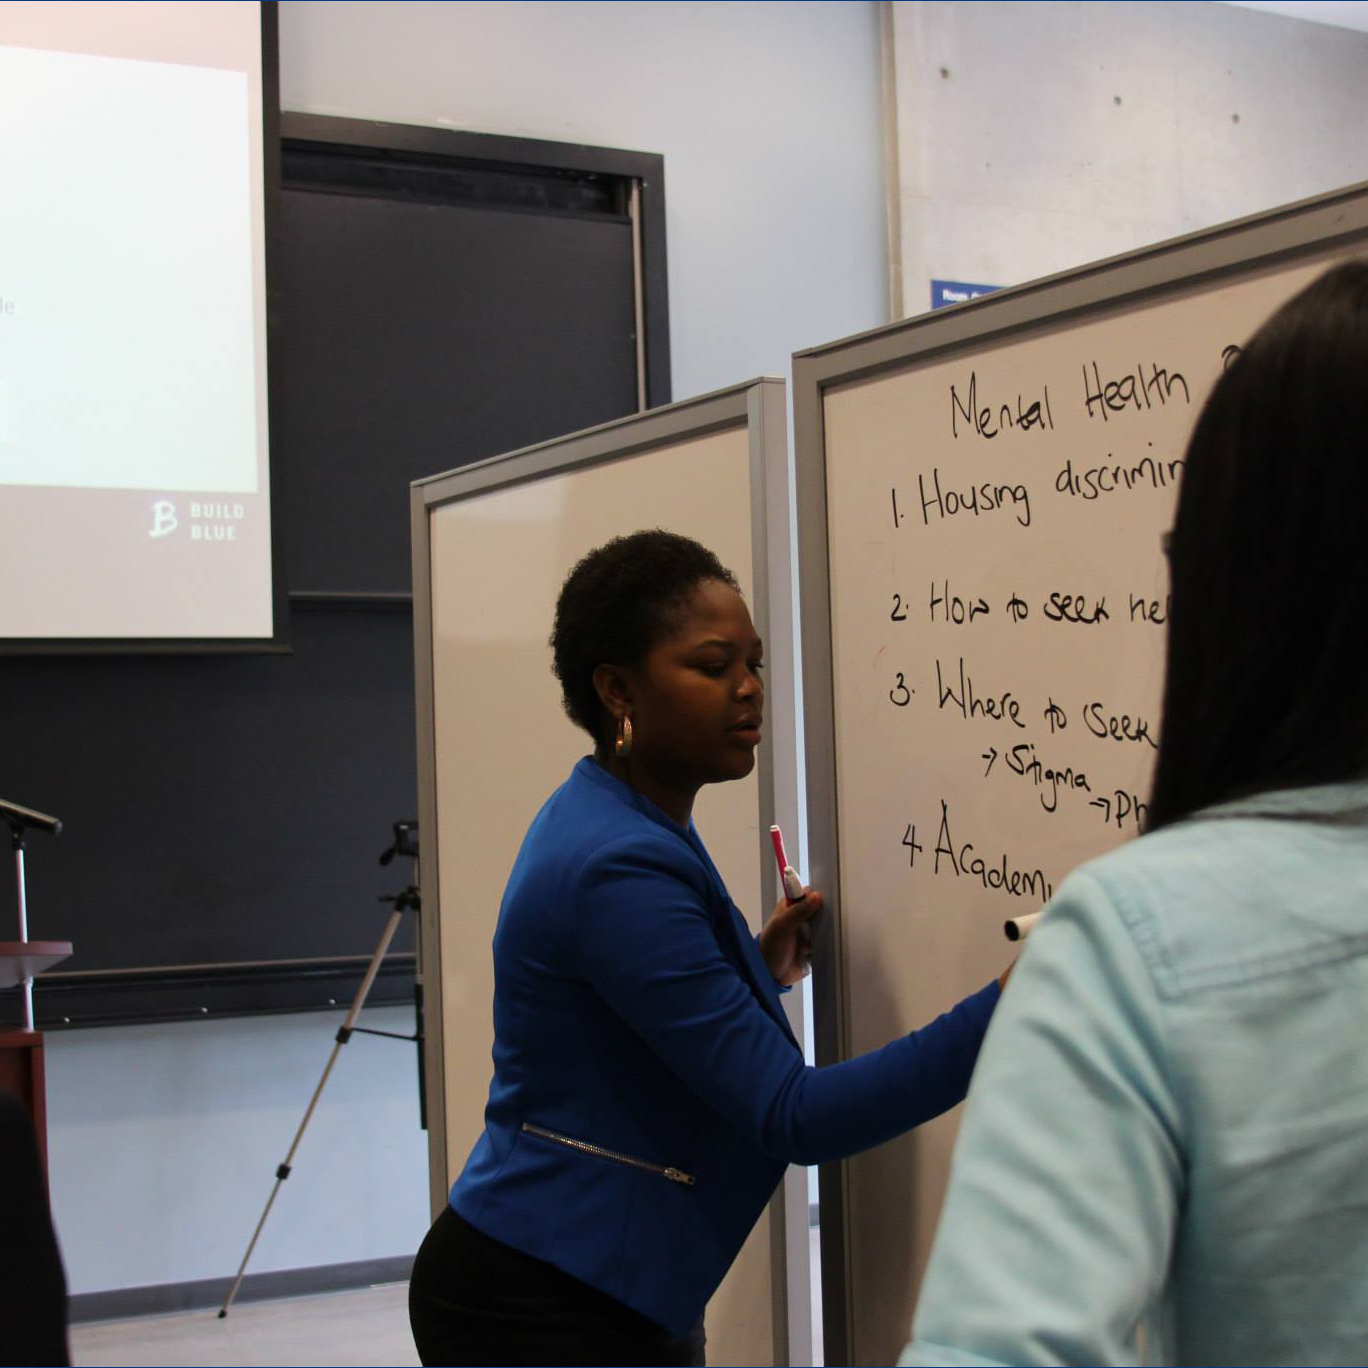 BUILD
BLUE
Mental Health
1. Housing discrimin
2. How to seek he
3. Where to seek
→ Stigma
→ Ph
4. Academi